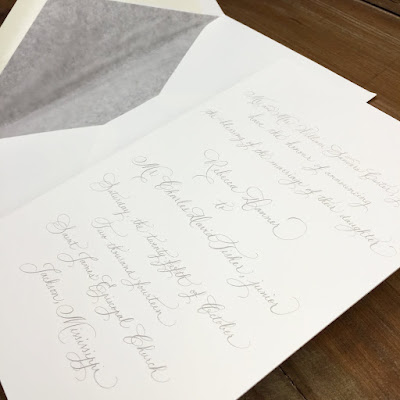 Mr. and Mrs.
have the honour of announcing
the blessing of the marriage of their daughter
Rebecca
to
Mr. Charles Harris Fisher, junior
Saturday, the twenty fifth of October
Two thousand fourteen
Saint James Episcopal Church
Jackson, Mississippi